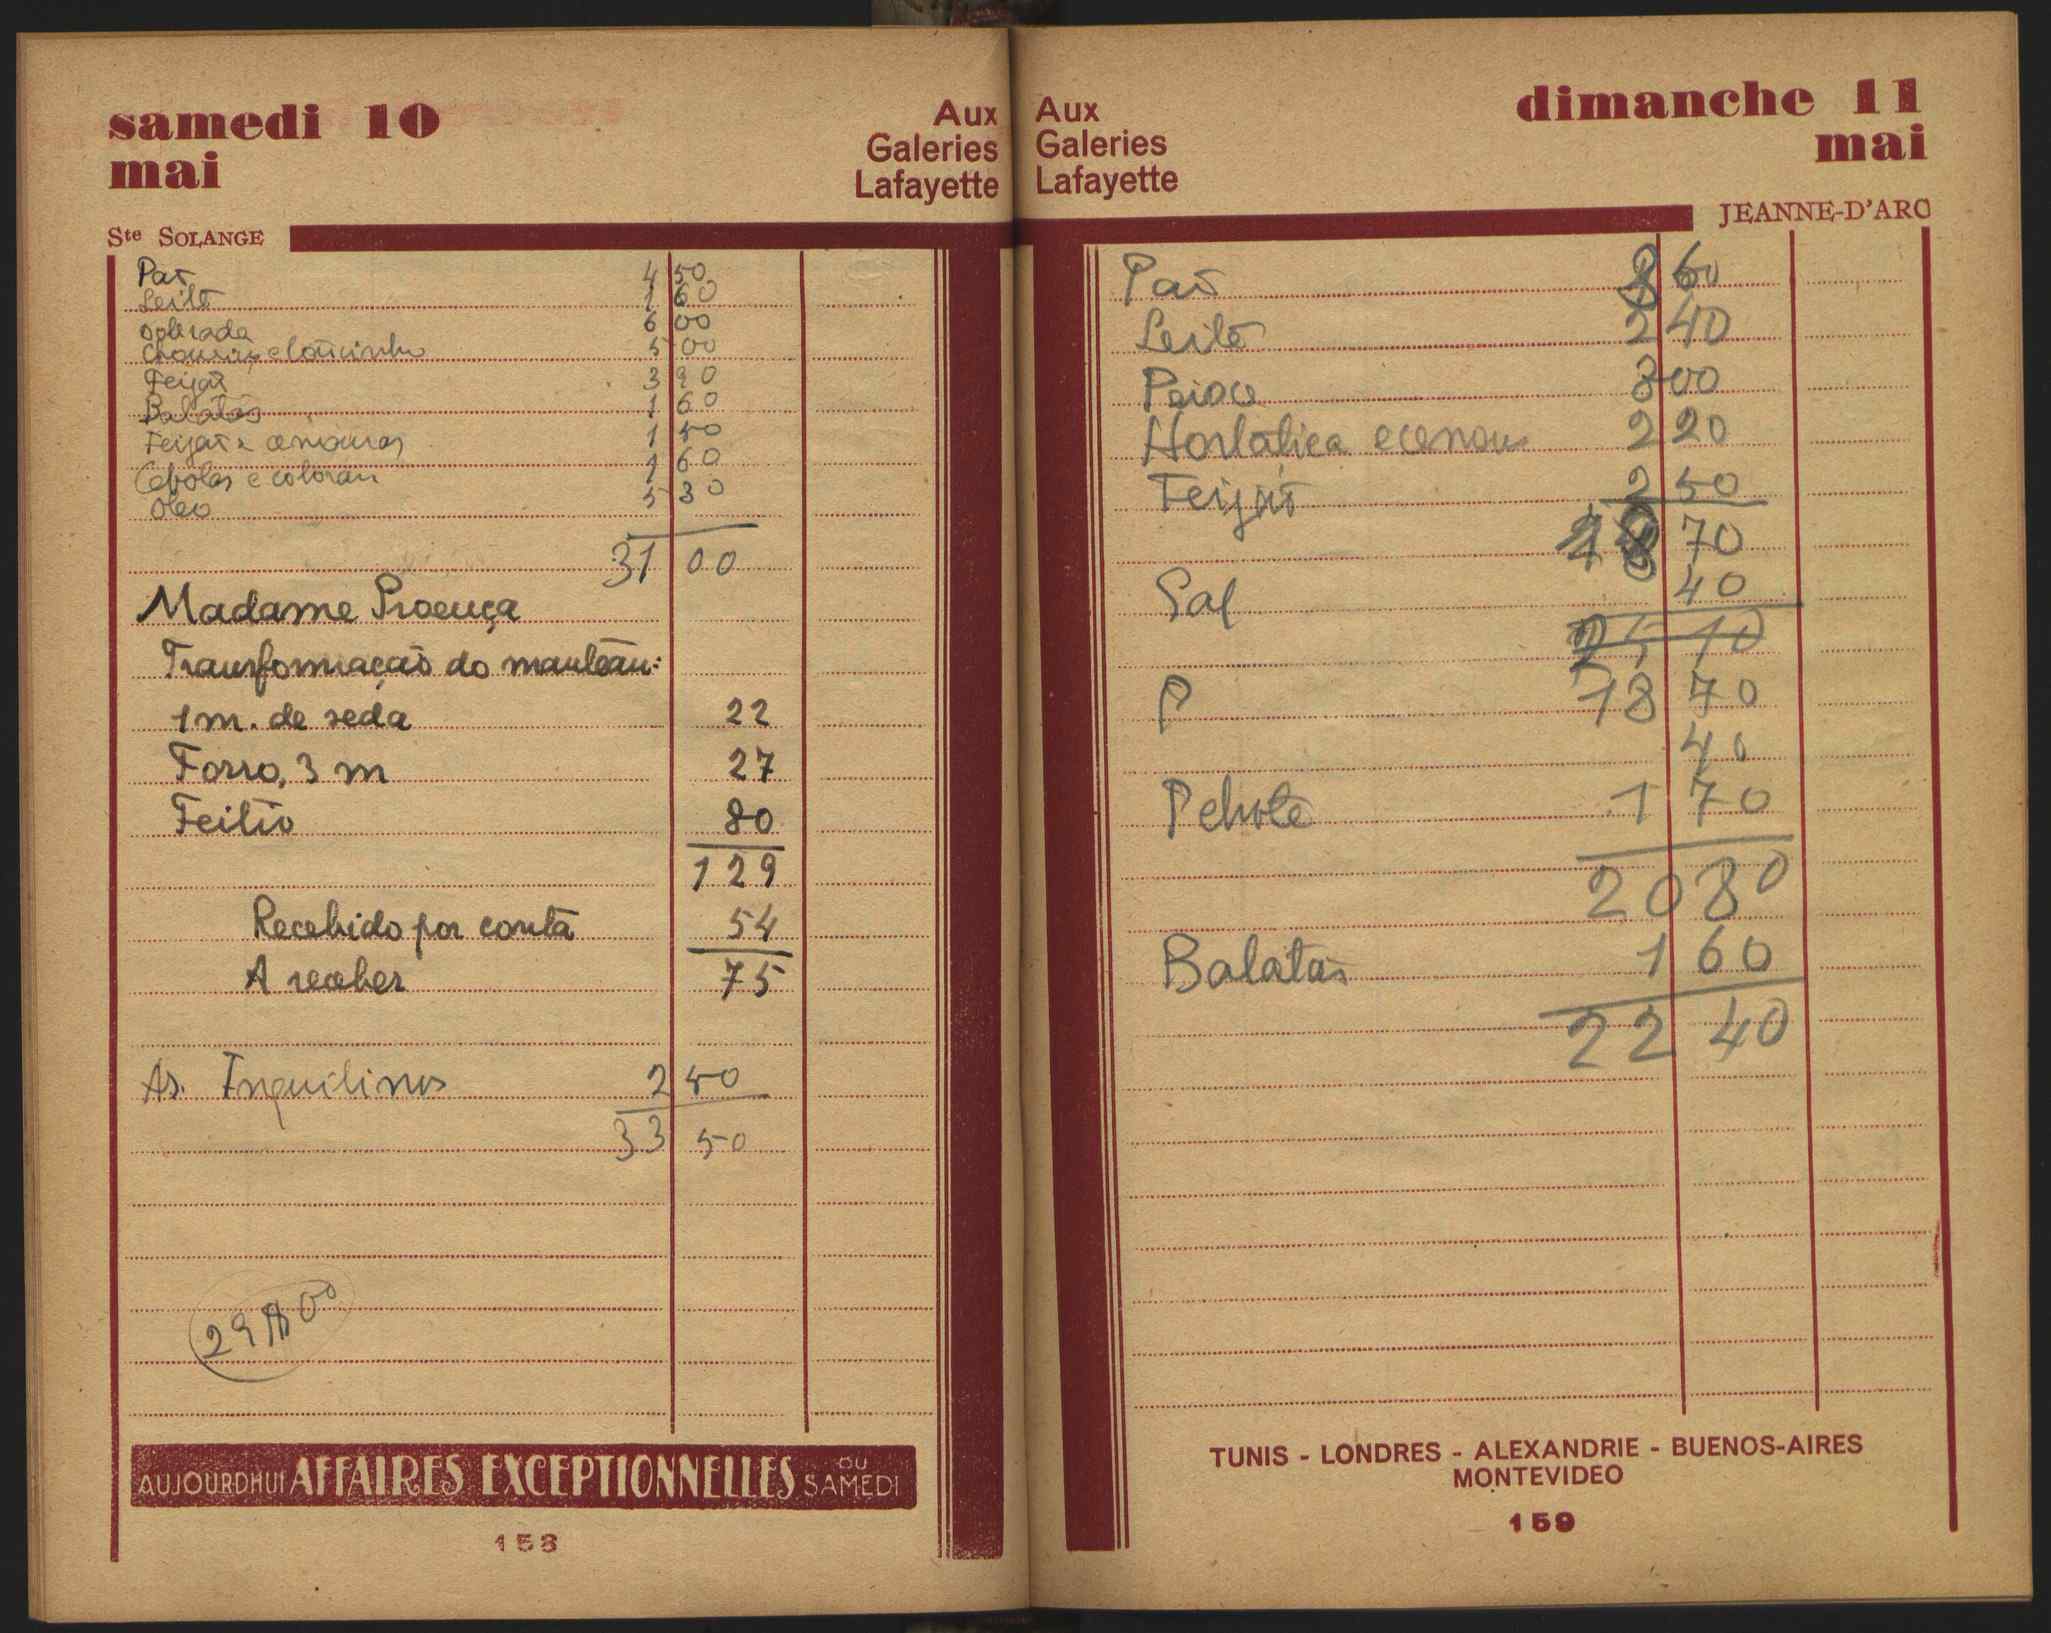 samedi 10
mai
Aux
Galeries
Lafayette
Ste SOLANGE
Pão 4 50
Leite 1 60
6 00
e toucinho 5 00
Feijão 3 90
Batatas 1 60
Feijão e cenouras 1 50
Cebolas e colorau 1 60
Oleo 5 30
31 00
Madame Proença
Transformação do manteau:
1 m. de seda 22
Forro, 3 m 27
Feitio 80
129
Recebido por conta 54
A receber 75
As. Inquilinos 2 50
33 50
AUJOURDHUI AFFAIRES EXCEPTIONNELLES OU SAMEDI
158
Aux
Galeries
Lafayette
dimanche 11
mai
JEANNE-D'ARC
Pão 60
Leite 2 40
Peixe 8 00
Hortaliça e cenou 2 20
Feijão 2 50
18 70
Sal 40
21 10
P 18 70
40
1 70
20 80
Batatas 1 60
22 40
TUNIS - LONDRES - ALEXANDRIE - BUENOS-AIRES
MONTEVIDEO
159